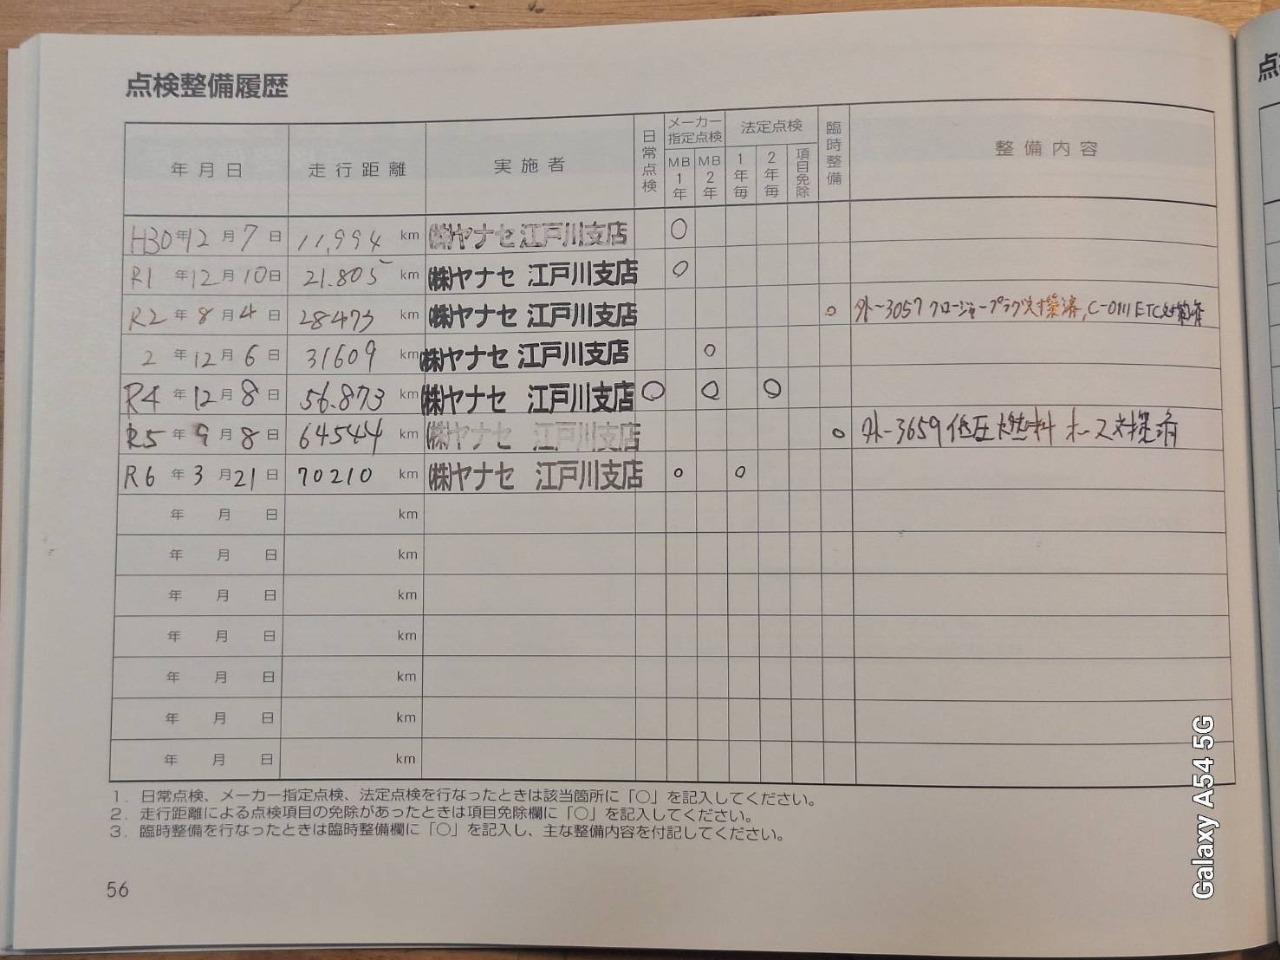 点検整備履歴
年月日 走行距離 実施者 日常点検 メーカー指定点検 MB1年 MB2年 法定点検 1年毎 2年毎 項目免除 臨時整備 整備内容
H30年12月7日 11,994 km (株)ヤナセ 江戸川支店 ○
R1年12月10日 21.805 km (株)ヤナセ 江戸川支店 ○
R2年8月4日 28473 km (株)ヤナセ 江戸川支店 ○ 外-3057 クロージャープラグ対策済, C-0111 ETC
2年12月6日 31609 km (株)ヤナセ 江戸川支店 ○
R4年12月8日 56.873 km (株)ヤナセ 江戸川支店 ○ ○ ○
R5年9月8日 64544 km (株)ヤナセ 江戸川支店 ○ 外-3659 低圧燃料ホース対策済
R6年3月21日 70210 km (株)ヤナセ 江戸川支店 ○ ○
年 月 日 km
年 月 日 km
年 月 日 km
年 月 日 km
年 月 日 km
年 月 日 km
年 月 日 km
1. 日常点検、メーカー指定点検、法定点検を行なったときは該当箇所に「○」を記入してください。
2. 走行距離による点検項目の免除があったときは項目免除欄に「○」を記入してください。
3. 臨時整備を行なったときは臨時整備欄に「○」を記入し、主な整備内容を付記してください。
56
点
Galaxy A54 5G